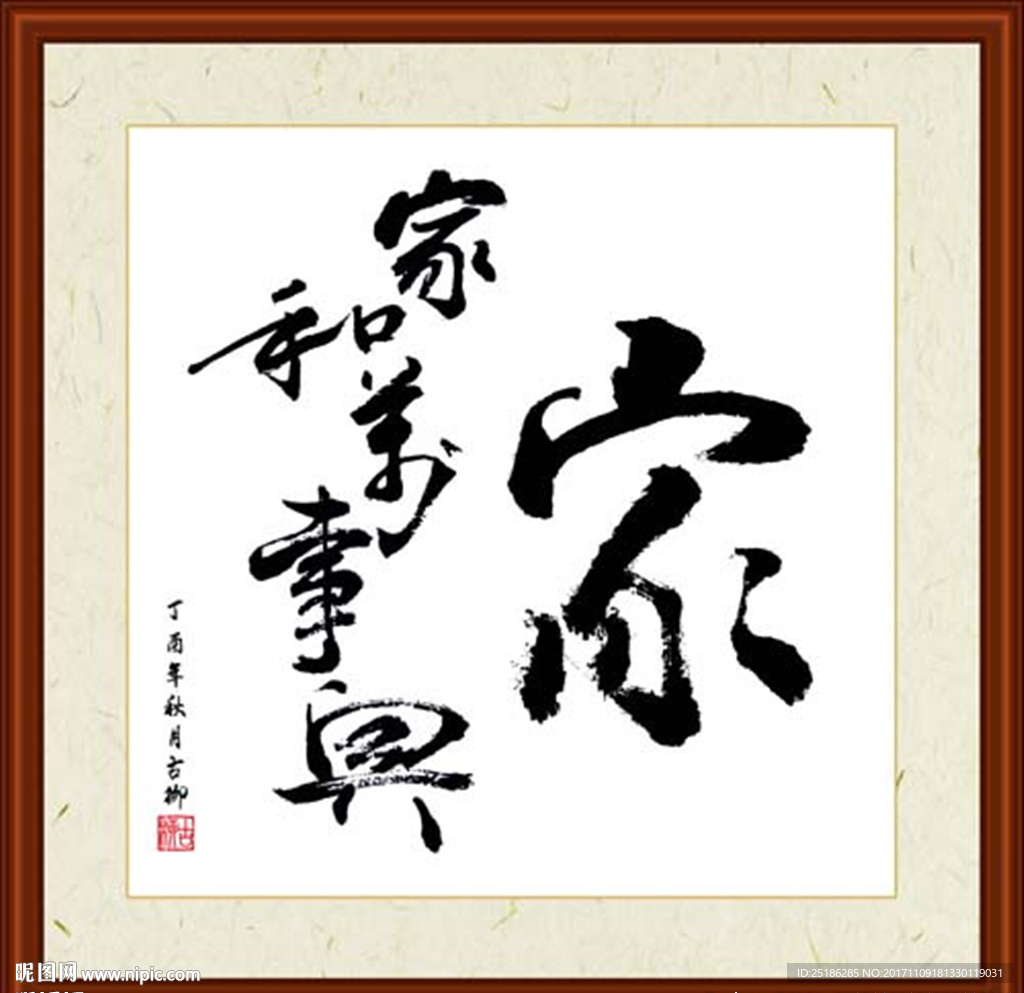 家
家和萬事興
丁酉年秋月古柳
昵图网 www.nipic.com
ID:25186285 NO:20171109181330119031